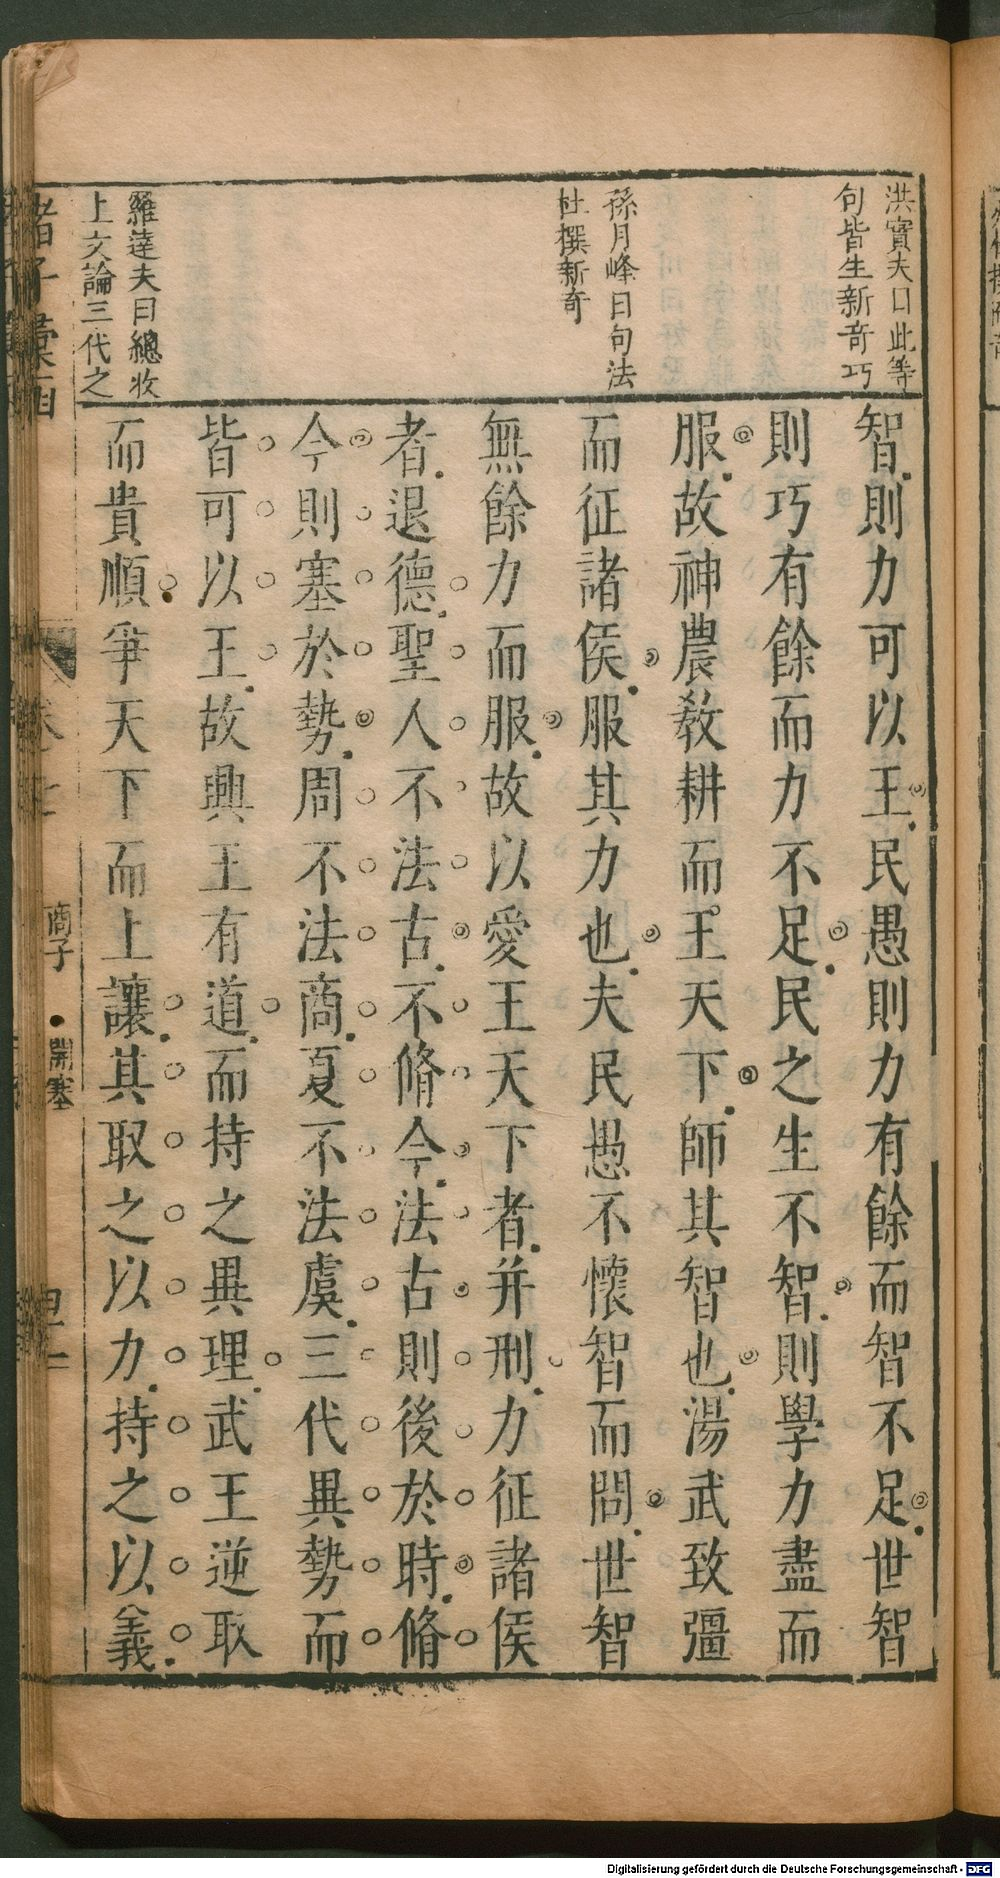 洪實夫曰此等
句皆生新奇巧
孫月峰曰句法
杜撰新奇
羅達夫曰總收
上文論三代之
智則力可以王民愚則力有餘而智不足世智
則巧有餘而力不足民之生不智則學力盡而
服故神農教耕而王天下師其智也湯武致彊
而征諸侯服其力也夫民愚不懷智而問世智
無餘力而服故以愛王天下者并刑力征諸侯
者退德聖人不法古不脩今法古則後於時脩
今則塞於勢周不法商夏不法虞三代異勢而
皆可以王故興王有道而持之異理武王逆取
而貴順爭天下而上讓其取之以力持之以義
諸子彙函
卷七
商子
開塞
Digitalisierung gefördert durch die Deutsche Forschungsgemeinschaft - DFG